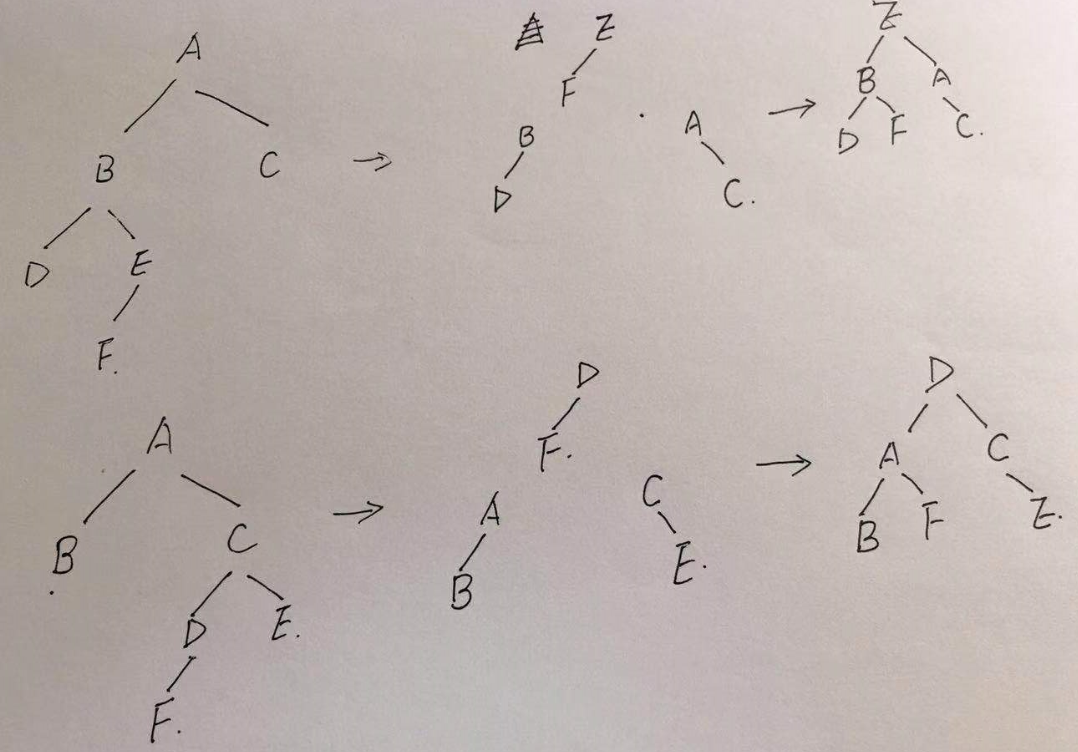 A
B C
D E
F.
→
E
F
B A
D C.
→
E
B A
D F C.
A
B C
D E.
F.
→
D
F.
A C
B E.
→
D
A C
B F E.